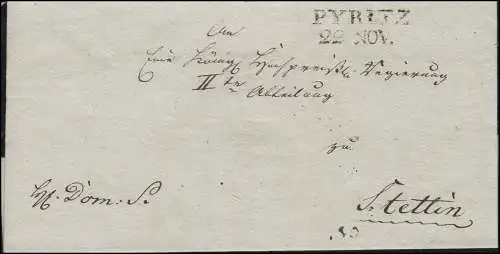 PYRITZ
22 NOV.
An
Eine Königl. Hochpreißl. Regierung
IIte Abteilung
zu
Stettin
Dom: S.